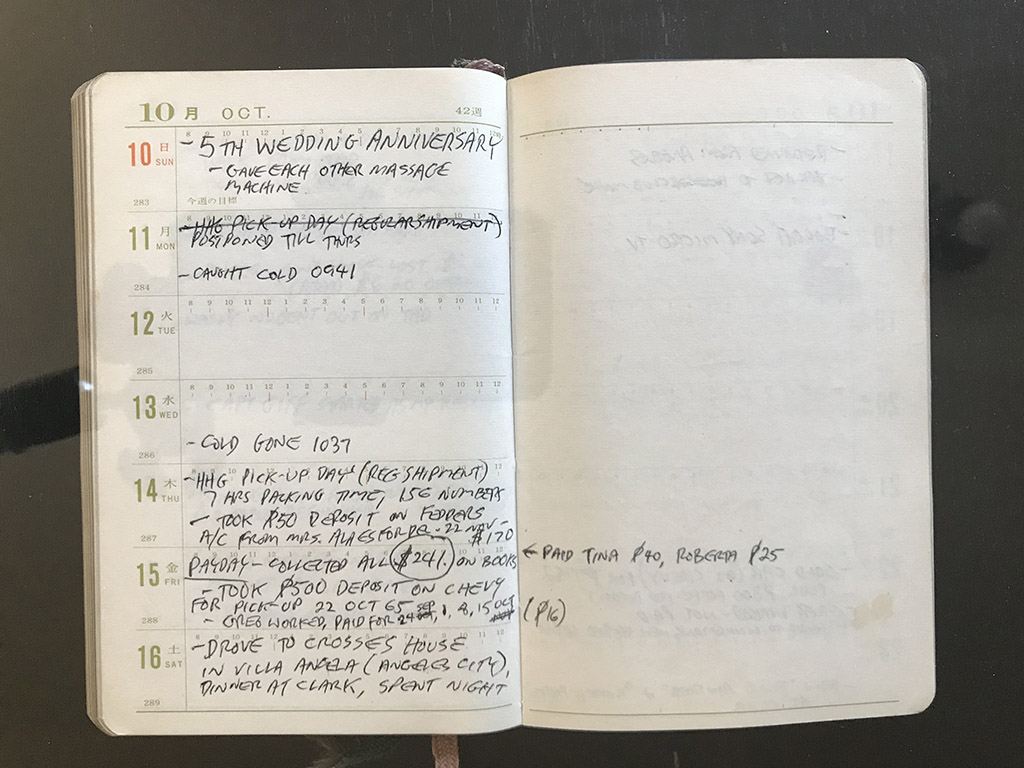 10月 OCT. 42週
8 9 10 11 12 1 2 3 4 5
10 日 SUN
- 5TH WEDDING ANNIVERSARY
- GAVE EACH OTHER MASSAGE
MACHINE
283 今週の目標
11 月 MON
- HHG PICK-UP DAY (REGULAR SHIPMENT)
POSTPONED TILL THURS
- CAUGHT COLD 0941
284
8 9 10 11 12 1 2 3 4 5 6 7 8 9 10 11 12
12 火 TUE
285
8 9 10 11 12 1 2 3 4 5 6 7 8 9 10 11 12
13 水 WED
- COLD GONE 1037
286
14 木 THU
- HHG PICK-UP DAY (REG SHIPMENT)
7 HRS PACKING TIME, 156 NUMBERS
- TOOK ₱50 DEPOSIT ON FEDDERS
A/C FROM MRS. FOR DEL. 22 NOV -
287 ₱170
15 金 FRI
PAYDAY - COLLECTED ALL $241. ON BOOKS
← PAID TINA ₱40, ROBERTA ₱25
- TOOK ₱500 DEPOSIT ON CHEVY
FOR PICK-UP 22 OCT 65
288 - GREG WORKED, PAID FOR 24 SEP, 1, 8, 15 OCT (₱16)
16 土 SAT
- DROVE TO CROSSES HOUSE
IN VILLA ANGELA (ANGELES CITY),
DINNER AT CLARK, SPENT NIGHT
289